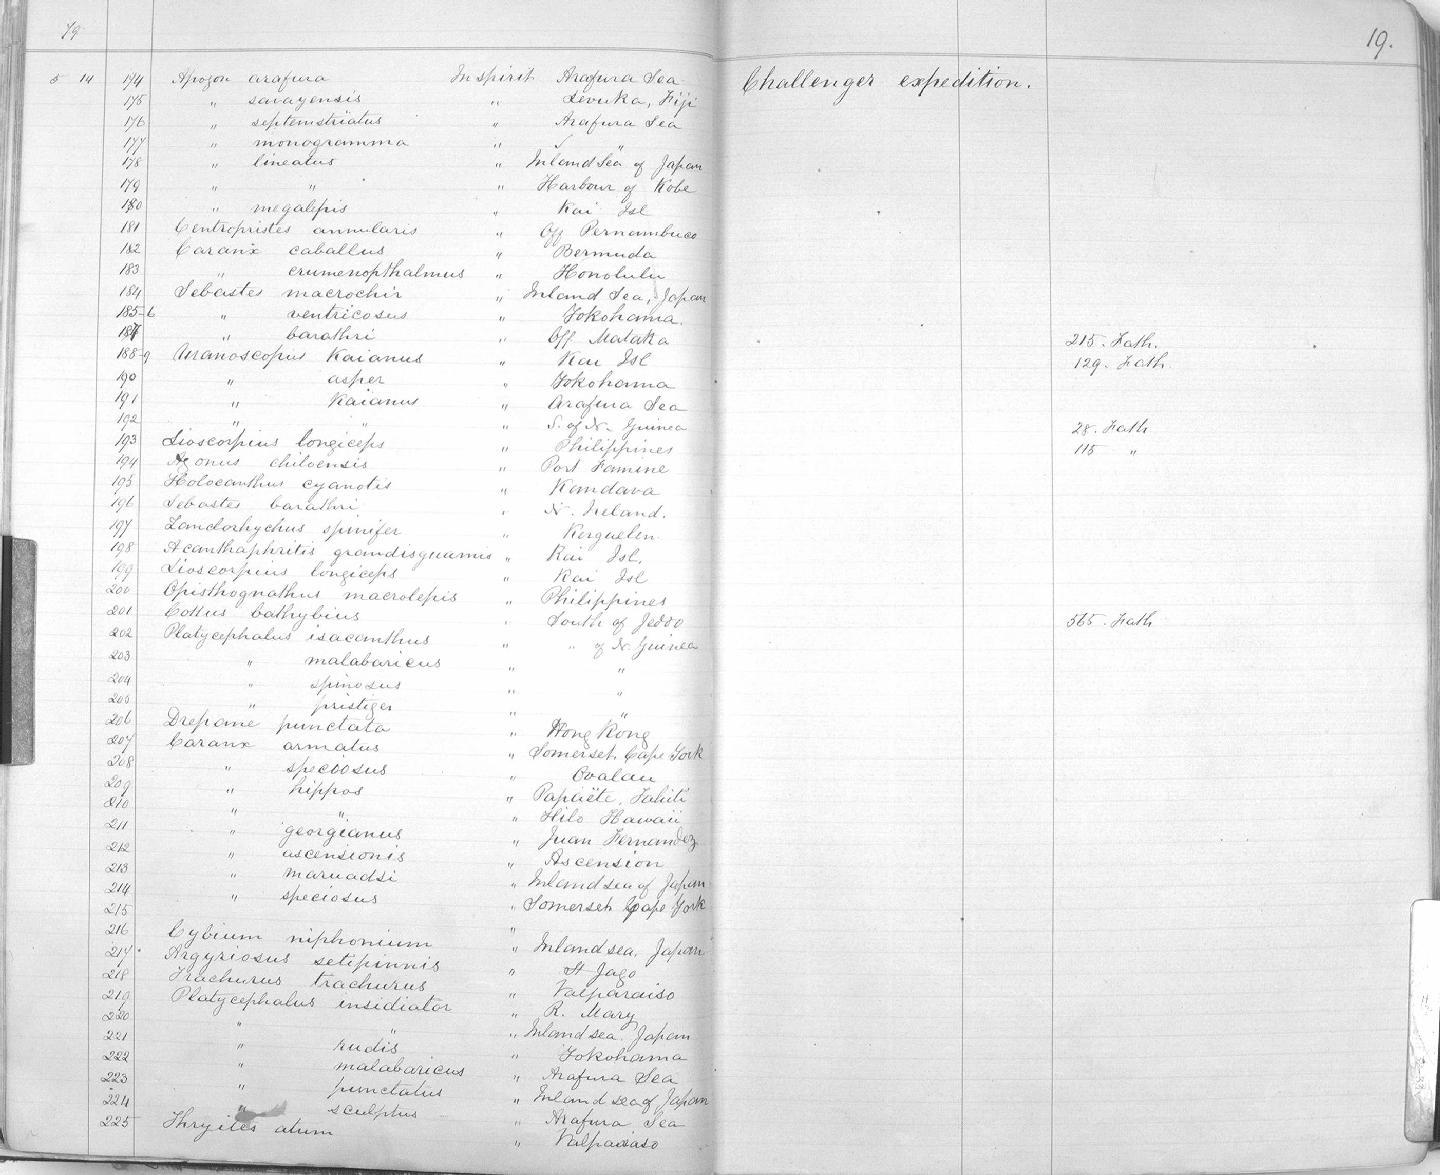 79
19.
5 14 174 Apogon arafura In spirit Arafura Sea Challenger expedition.
175 " savayensis " Levuka, Fiji
176 " septemstriatus " Arafura Sea
177 " monogramma " "
178 " lineatus " Inland Sea of Japan
179 " " " Harbour of Kobe
180 " megalepis " Kai Isl
181 Centropristes annularis " Off Pernambuco
182 Caranx caballus " Bermuda
183 " crumenopthalmus " Honolulu
184 Sebastes macrochir " Inland Sea, Japan
185-6 " ventricosus " Yokohama.
187 " barathri " Off Mataka 215. Fath.
188-9 Uranoscopus Kaianus " Kai Isl 129. Fath.
190 " asper " Yokohama
191 " Kaianus " Arafura Sea
192 " " " S. of N. Guinea 28. Fath
193 Lioscorpius longiceps " Philippines 115 "
194 Agonus chiloensis " Port Famine
195 Holocanthus cyanotis " Kandava
196 Sebastes barathri " N. Zealand.
197 Zanclorhychus spinifer " Kerguelen
198 Acanthaphritis grandisquamis " Kai Isl.
199 Lioscorpius longiceps " Kai Isl
200 Opisthognathus macrolepis " Philippines
201 Cottus bathybius " South of Jeddo 565. Fath
202 Platycephalus isacanthus " " of N. Guinea
203 " malabaricus " "
204 " spinosus " "
205 " pristiger " "
206 Drepane punctata " Hong Kong
207 Caranx armatus " Somerset Cape York
208 " speciosus " Ovalau
209 " hippos " Papaëte, Tahiti
210 " " " Hilo Hawaii
211 " georgianus " Juan Fernandez
212 " ascensionis " Ascension
213 " maruadsi " Inland sea of Japan
214 " speciosus " Somerset Cape York
215 "
216 Cybium niphonium " Inland sea, Japan
217 Argyriosus setipinnis " St Jago
218 Trachurus trachurus " Valparaiso
219 Platycephalus insidiator " R. Mary
220 " " " Inland sea Japan
221 " rudis " Yokohama
222 " malabaricus " Arafura Sea
223 " punctatus " Inland sea of Japan
224 " sculptus " Arafura Sea
225 Thryites atum " Valparaiso